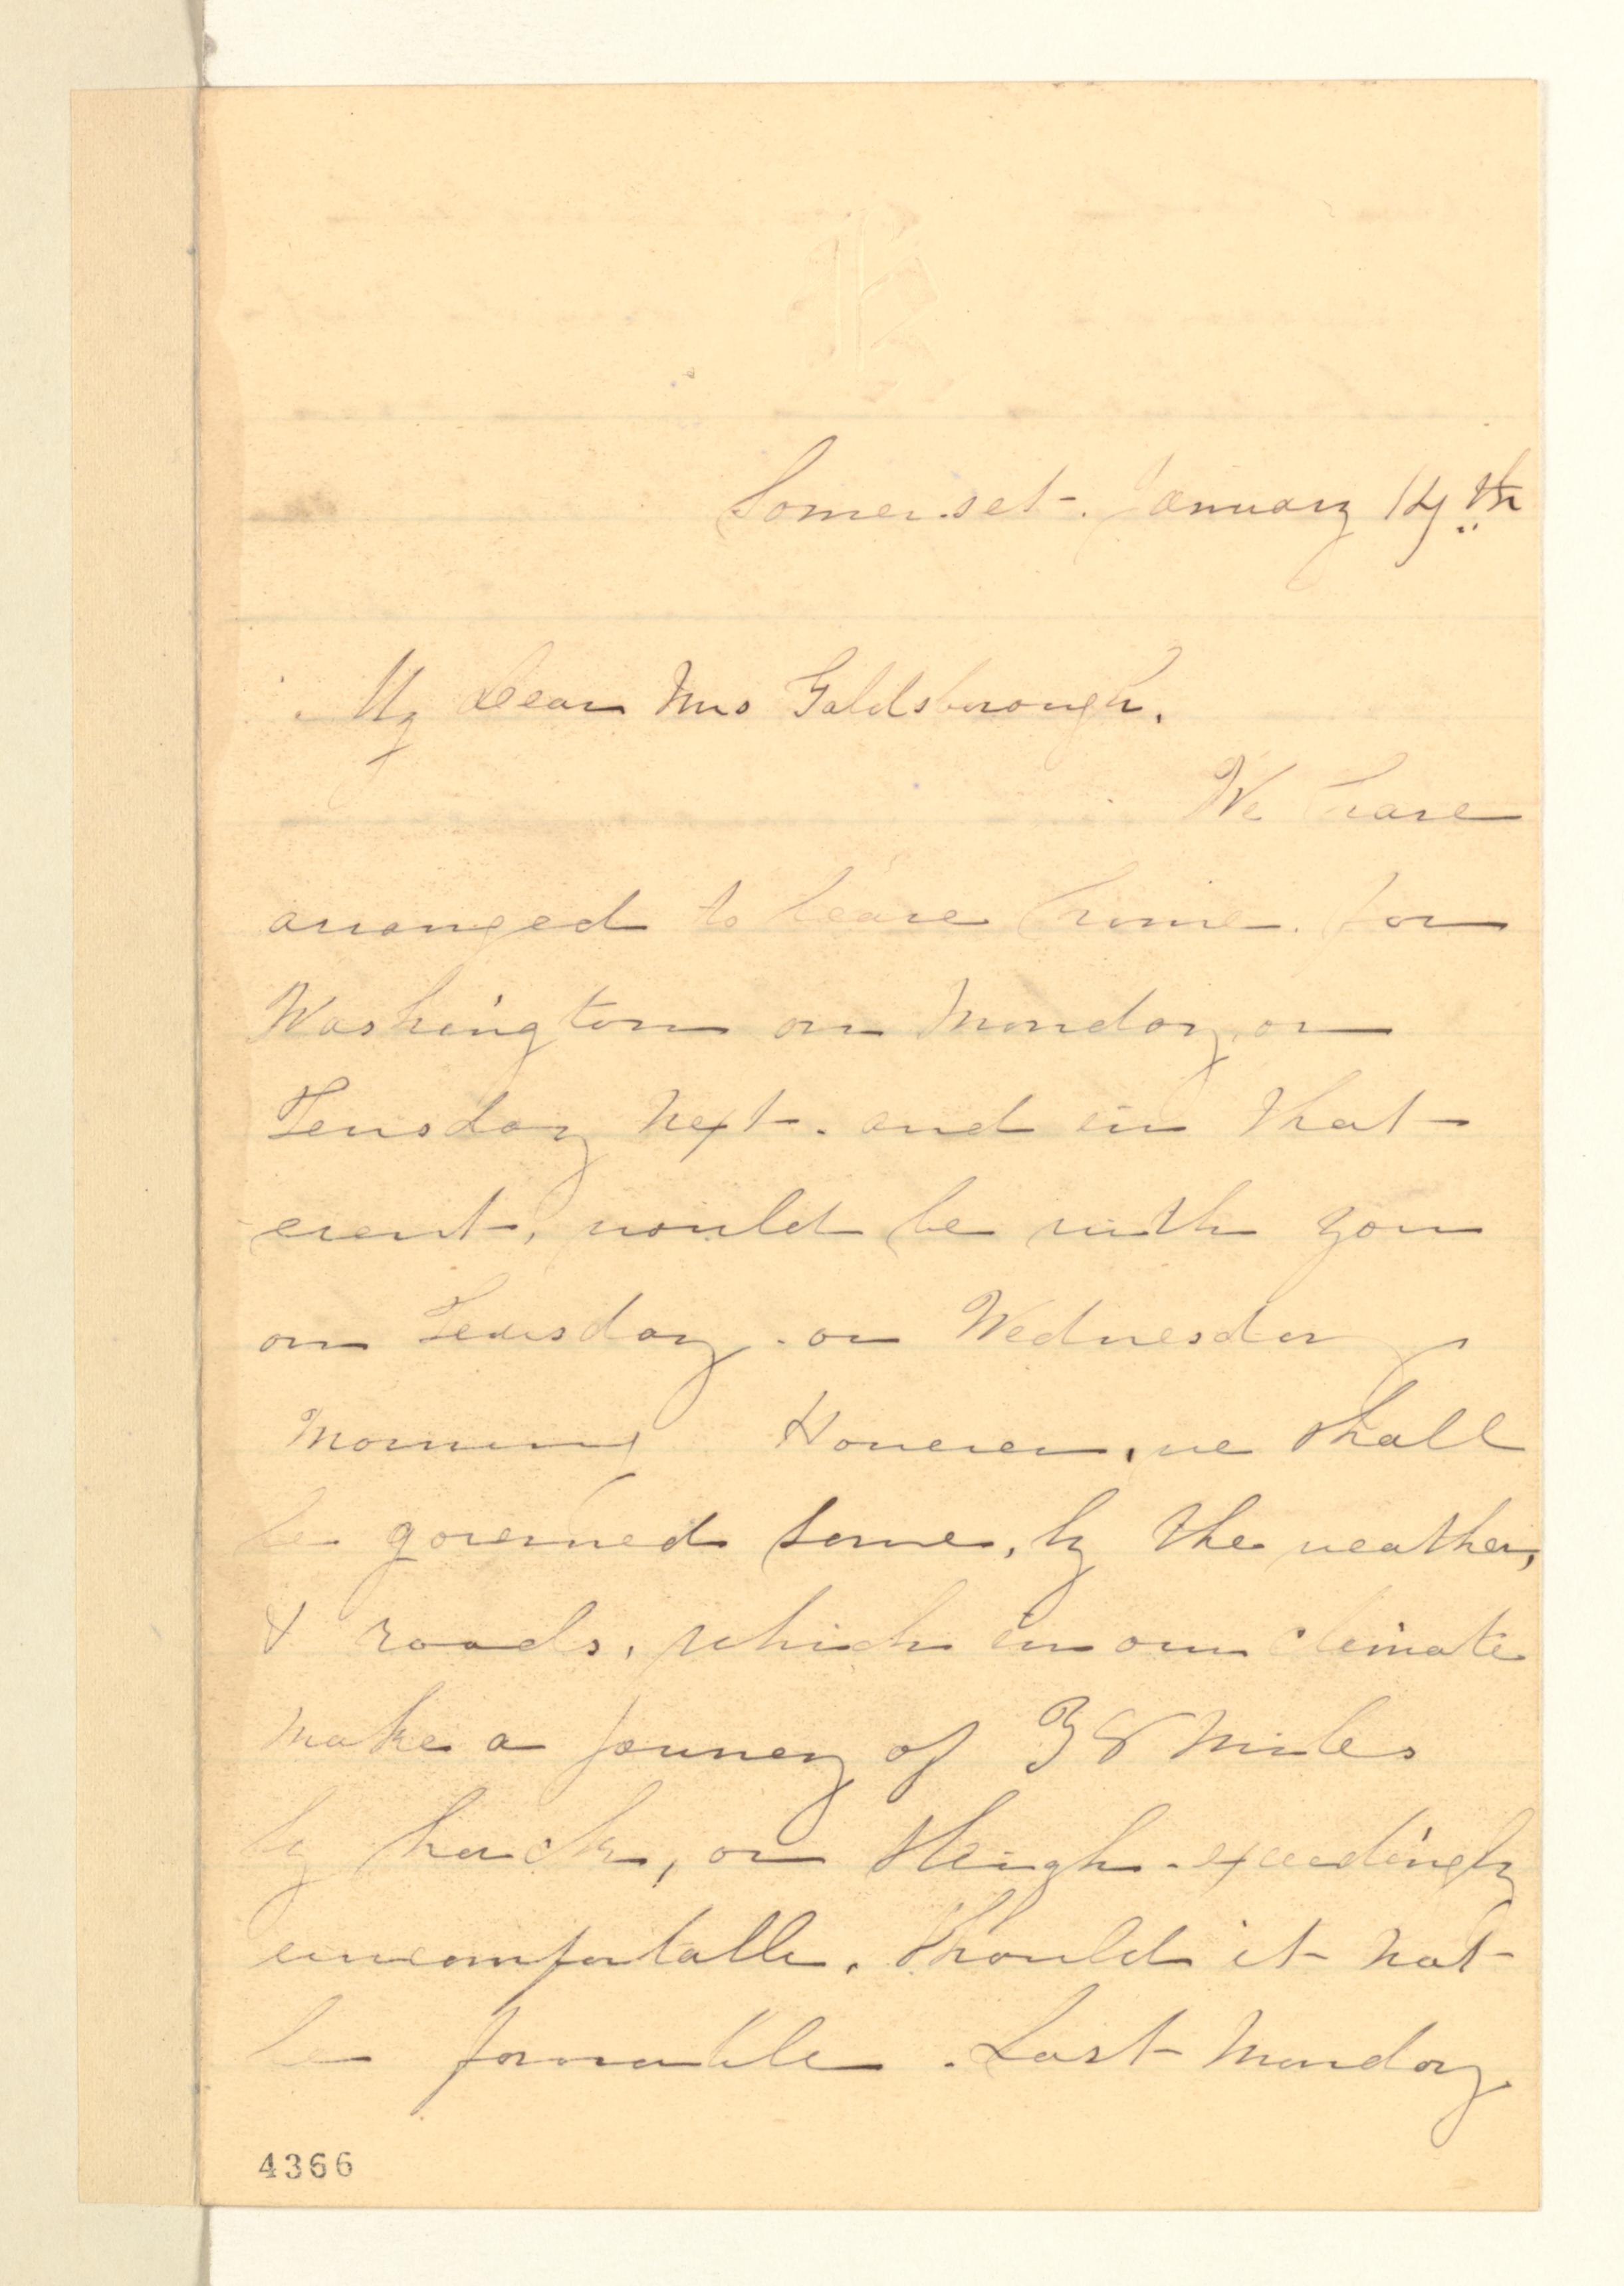 K
Somerset. January 14th
My Dear Mrs Goldsborough.
We have
arranged to leave home. for
Washington on Monday or
Teusday next. and in that
event, would be with you
on Teusday. or Wednesday
Morning However, we shall
be governed some, by the weather,
& roads, which in our climate
make a journey of 38 miles
by hack, or sleigh. exceedingly
uncomfortable. Should it not
be favorable. Last Monday
4366